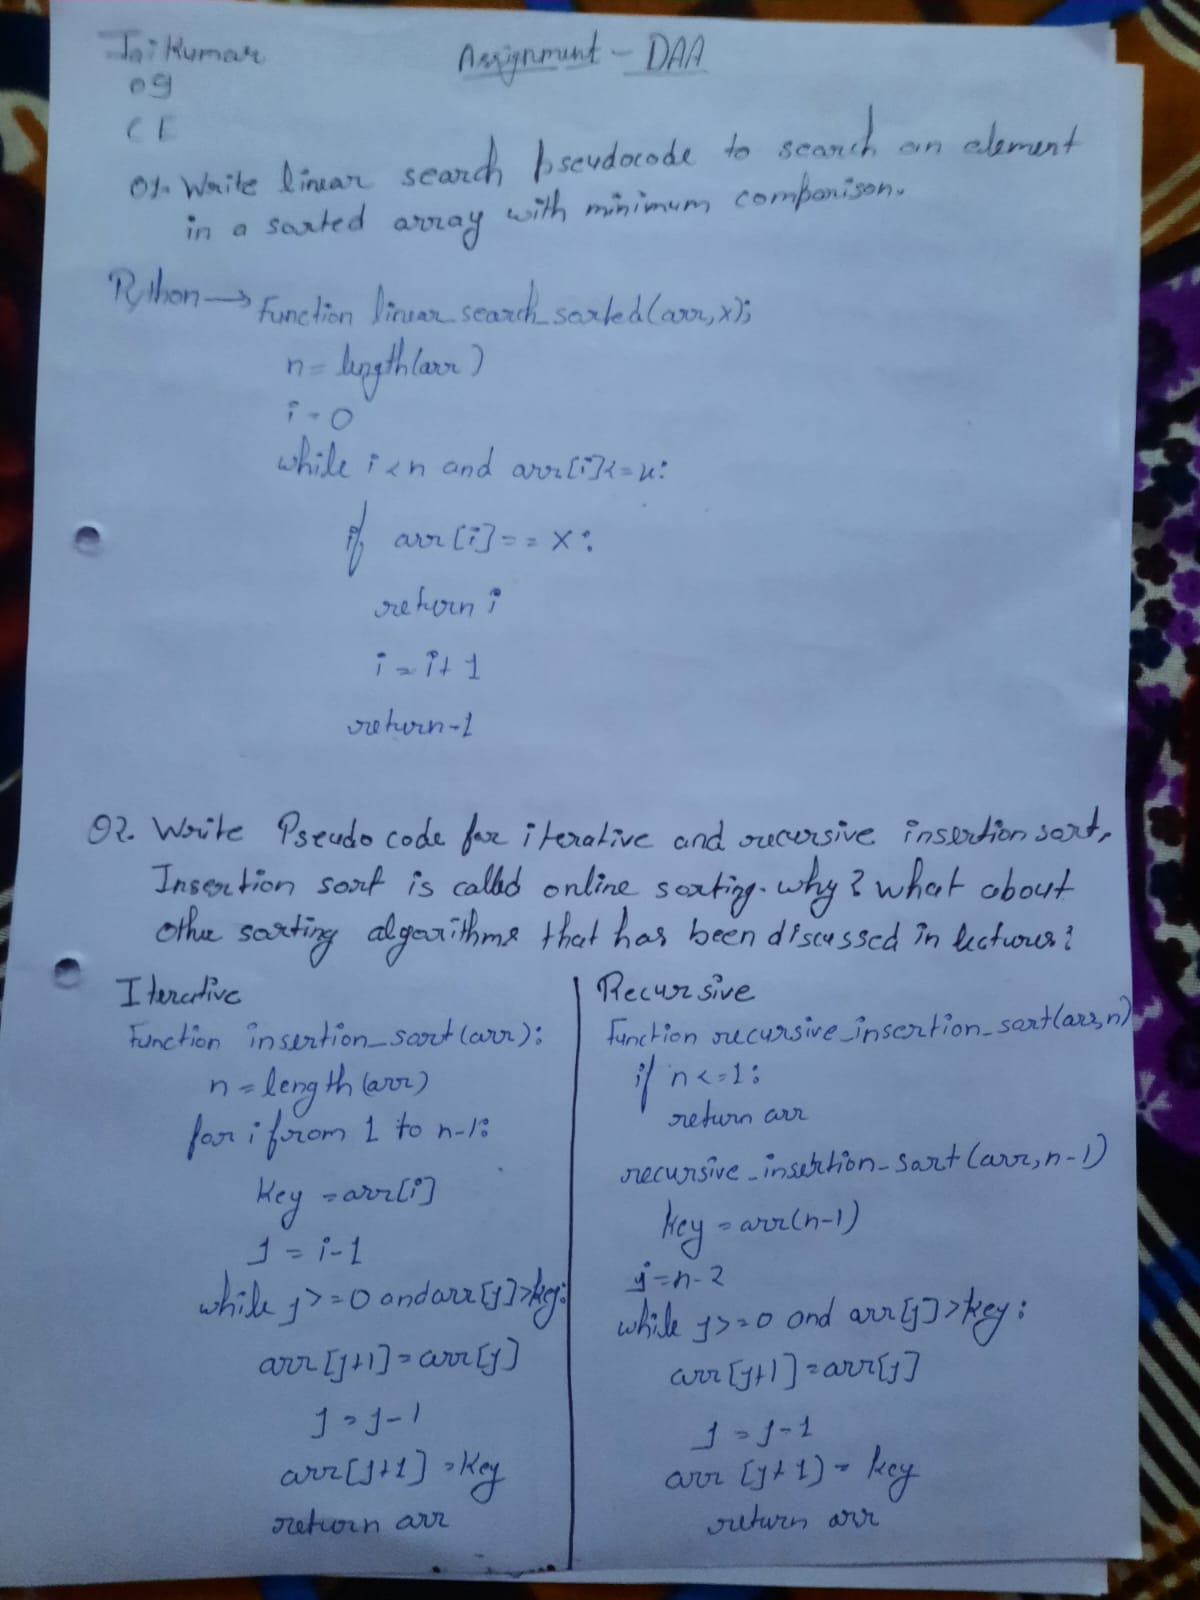 Jai Kumar
Assignment - DAA
09
CE
Q1. Write linear search pseudocode to search an element
in a sorted array with minimum comparison.
Python → Function linear_search_sorted(arr,x):
n = length(arr)
i = 0
while i<n and arr[i]<=x:
if arr[i]==x:
return i
i = i+1
return-1
Q2. Write Pseudo code for iterative and recursive insertion sort,
Insertion sort is called online sorting. why? what about
other sorting algorithms that has been discussed in lectures?
Iterative
Function insertion_sort(arr):
n = length(arr)
for i from 1 to n-1:
key = arr[i]
j = i-1
while j>=0 and arr[j]>key:
arr[j+1]=arr[j]
j = j-1
arr[j+1] = key
return arr
Recursive
Function recursive_insertion_sort(arr,n)
if n<=1:
return arr
recursive_insertion_sort(arr,n-1)
key = arr(n-1)
j=n-2
while j>=0 and arr[j]>key:
arr[j+1]=arr[j]
j = j-1
arr [j+1) = key
return arr